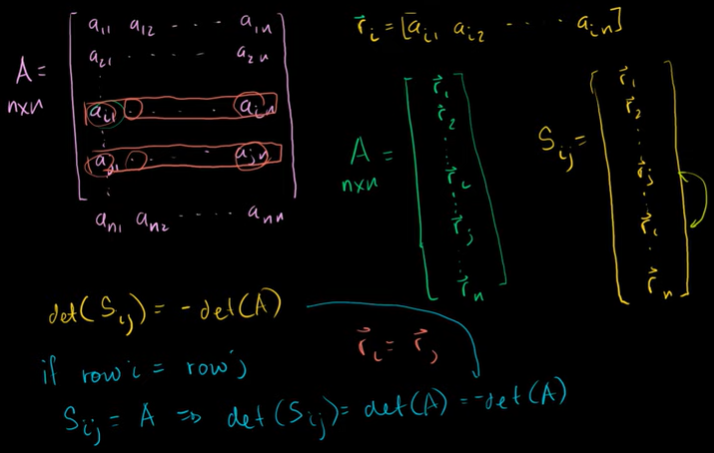 A = n×n [ a₁₁ a₁₂ ···· a₁ₙ
a₂₁ ···· a₂ₙ
⋮
aᵢ₁ · ···· aᵢₙ
⋮
aⱼ₁ · ···· aⱼₙ
⋮
aₙ₁ aₙ₂ ···· aₙₙ ]
r⃗ᵢ = [aᵢ₁ aᵢ₂ ···· aᵢₙ]
A = n×n [ r⃗₁
r⃗₂
⋮
r⃗ᵢ
⋮
r⃗ⱼ
⋮
r⃗ₙ ]
Sᵢⱼ = [ r⃗₁
r⃗₂
⋮
r⃗ⱼ
⋮
r⃗ᵢ
⋮
r⃗ₙ ]
det(Sᵢⱼ) = -det(A)
r⃗ᵢ = r⃗ⱼ
if row i = row j
Sᵢⱼ = A ⇒ det(Sᵢⱼ) = det(A) = -det(A)